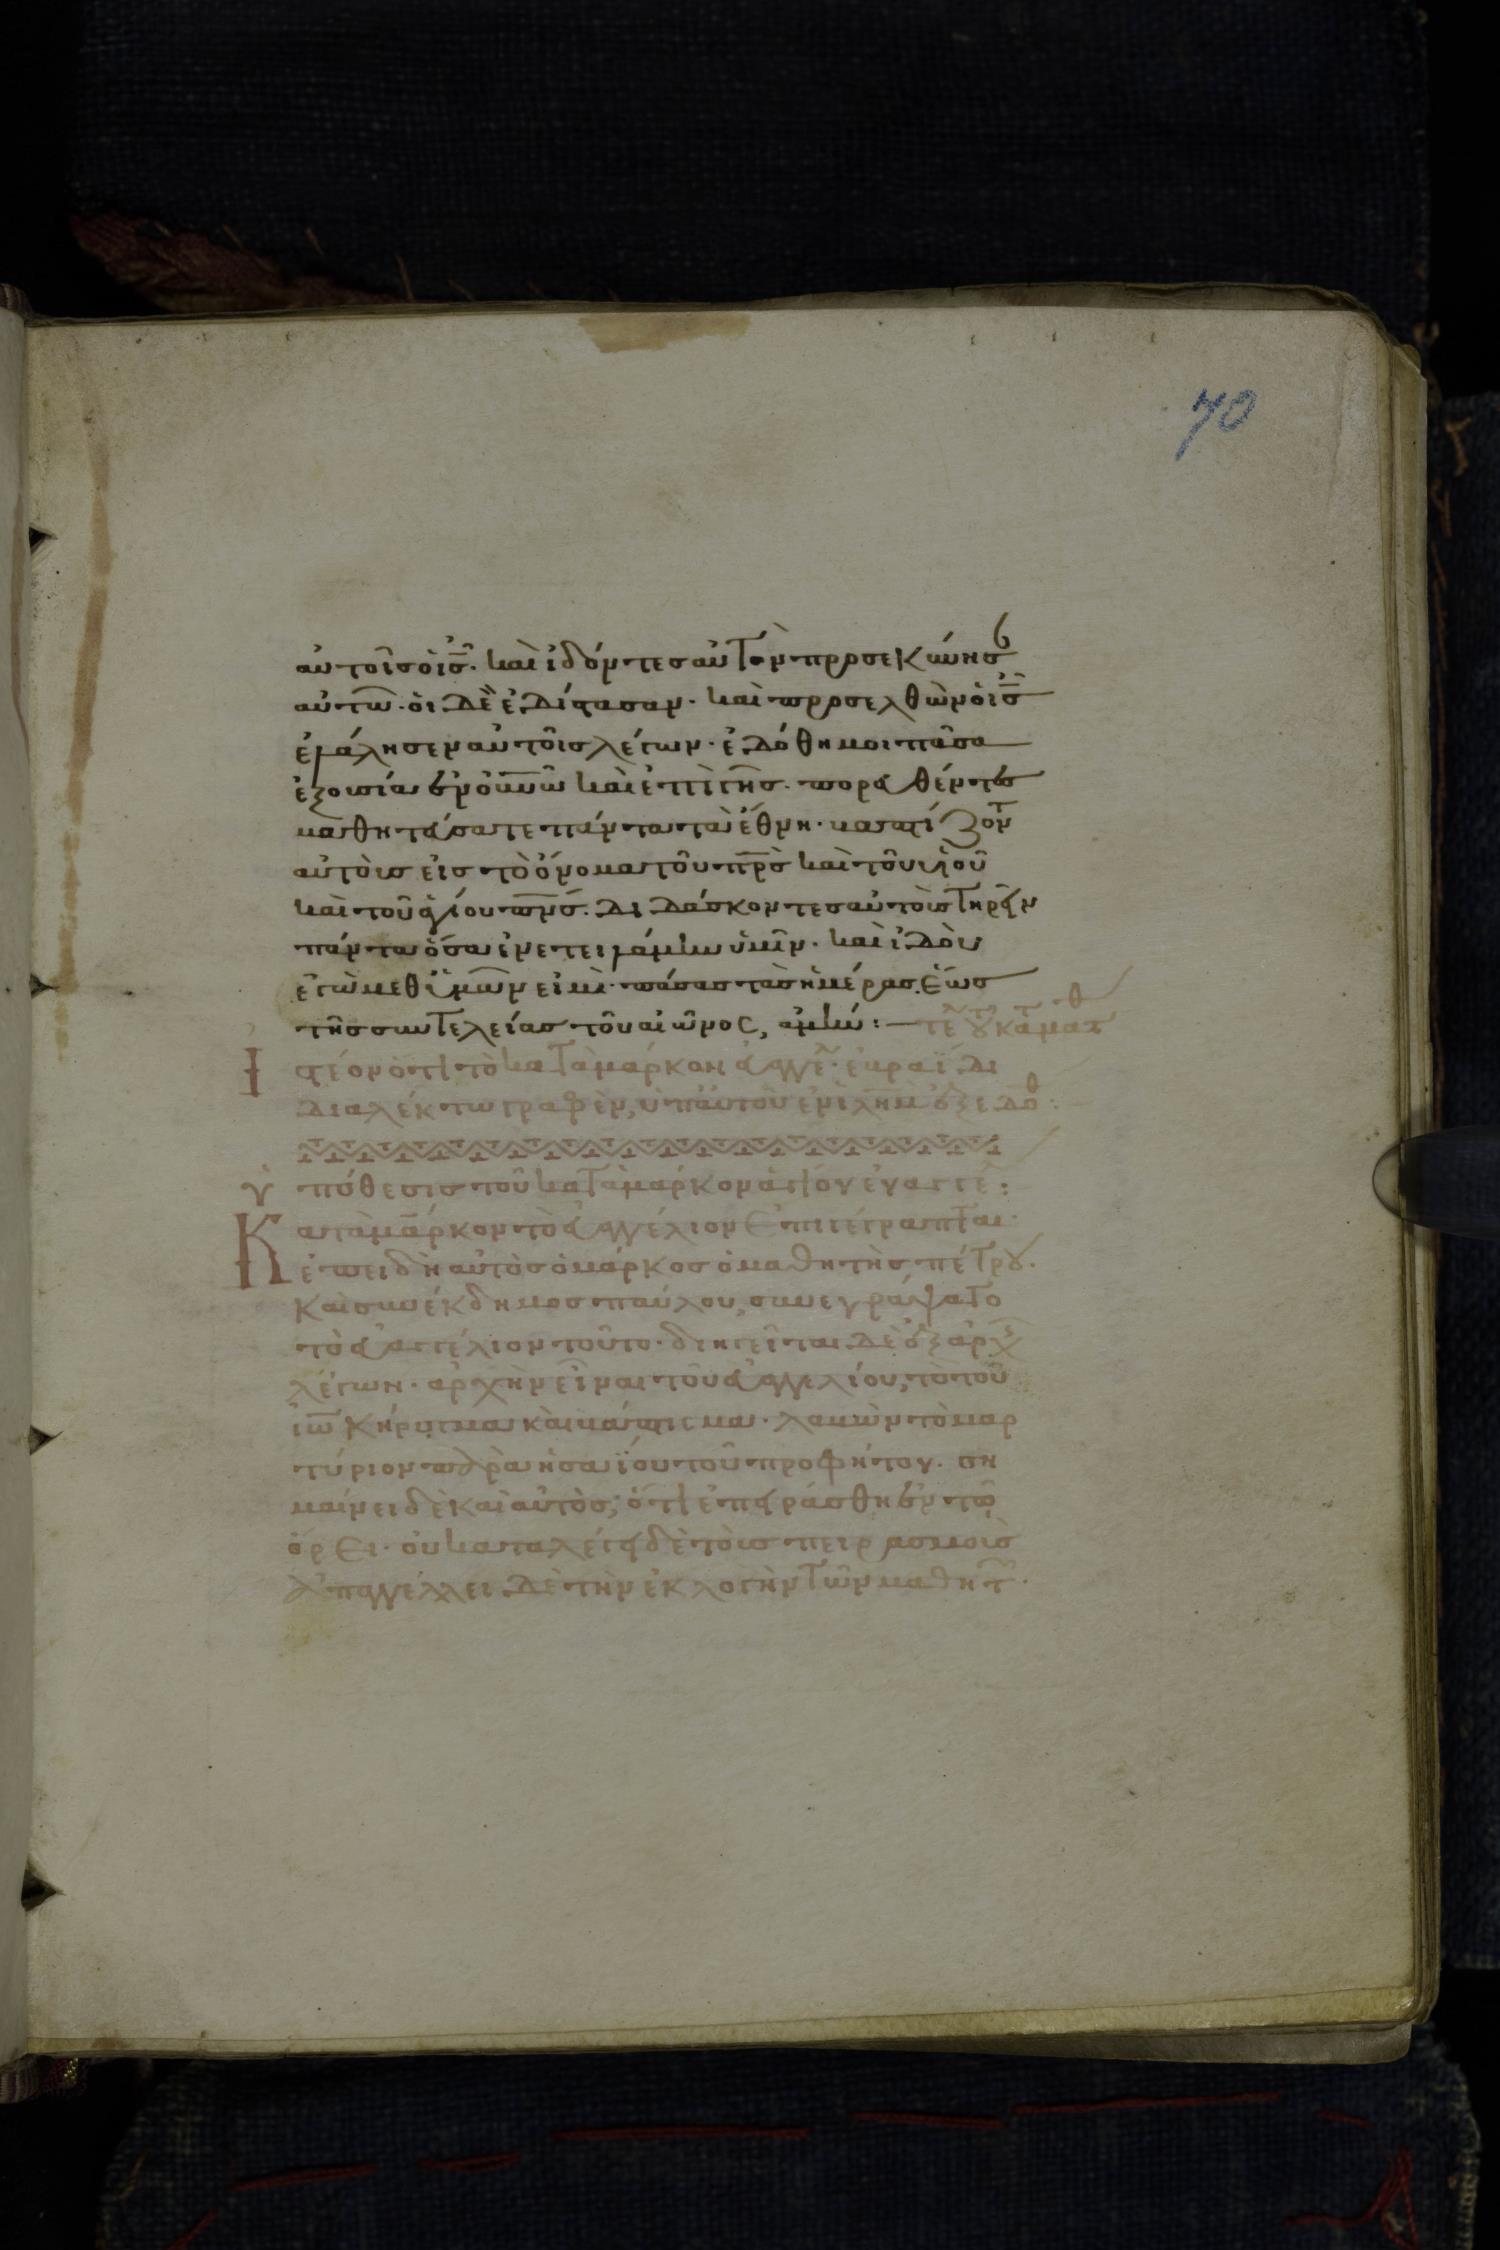 70
αὐτοῖς ὁ ις̅. καὶ ἰδόντες αὐτὸν προσεκύνησ
αὐτῶ· οἱ δὲ ἐδίστασαν· καὶ προσελθὼν ὁ ις̅
ἐλάλησεν αὐτοῖς λέγων· ἐδόθη μοι πᾶσα
ἐξουσία ἐν οὐνῶ καὶ ἐπὶ γῆς. πορευθέντες
μαθητεύσατε πάντα τὰ ἔθνη· βαπτίζον
αὐτοὺς εἰς τὸ ὄνομα τοῦ πρς̅ καὶ τοῦ υἱοῦ
καὶ τοῦ ἁγίου πνς̅. διδάσκοντες αὐτοὺς τηρεῖν
πάντα ὅσα ἐνετειλάμην ὑμῖν· καὶ ἰδοὺ
ἐγὼ μεθ ὑμῶν εἰμὶ· πάσας τὰς ἡμέρας ἕως
τῆς συντελείας τοῦ αἰῶνος, ἀμήν:—
Ἰστέον ὅτι τὸ κατὰ μάρκον εὐαγγε·
διαλέκτω γραφὲν, ὑπ αὐτοῦ ἐν ἱλημ
ὑπόθεσις τοῦ κατὰ μάρκον ἁγίου εὐαγγε:
Κατὰ μάρκον τὸ εὐαγγέλιον ἐπιγέγραπται·
ἐπειδὴ αὐτὸς ὁ μάρκος ὁ μαθητὴς πέτρου.
καὶ συνέκδημος παύλου, συνεγράψατο
τὸ εὐαγγέλιον τοῦτο· διηγεῖται δὲ ἐξ αρχ
λέγων· ἀρχὴν εἶναι τοῦ εὐαγγελίου, τὸ τοῦ
ιω̅ κήρυγμα καὶ βάπτισμα· λαβὼν τὸ μαρ
τύριον παρὰ ἡσαΐου τοῦ προφήτου. ση
μαίνει δὲ καὶ αὐτὸς, ὅτι ἐπειράσθη ἐν τῶ
ὄρει· οὐ καταλέγει δὲ τοὺς πειρασμοὺς
ἀπαγγέλλει δὲ τὴν ἐκλογὴν τῶν μαθητ·